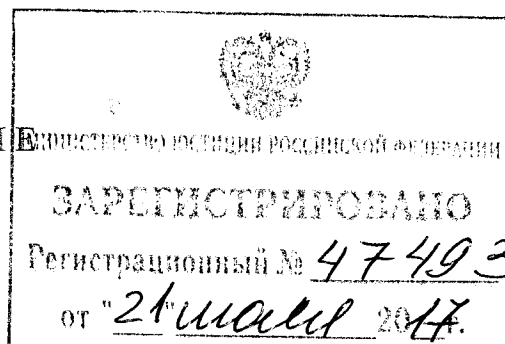 МИНИСТЕРСТВО ЮСТИЦИИ РОССИЙСКОЙ ФЕДЕРАЦИИ
ЗАРЕГИСТРИРОВАНО
Регистрационный № 47493
от "21" июля 2017г.